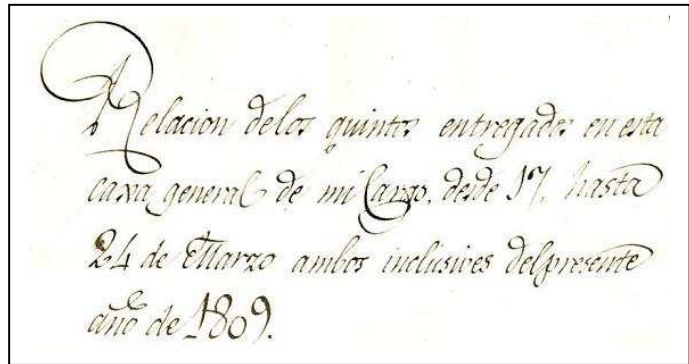 Relacion de los quintos entregados en esta
caxa general de mi Cargo, desde 17, hasta
24 de Marzo ambos inclusives del presente
año de 1809.